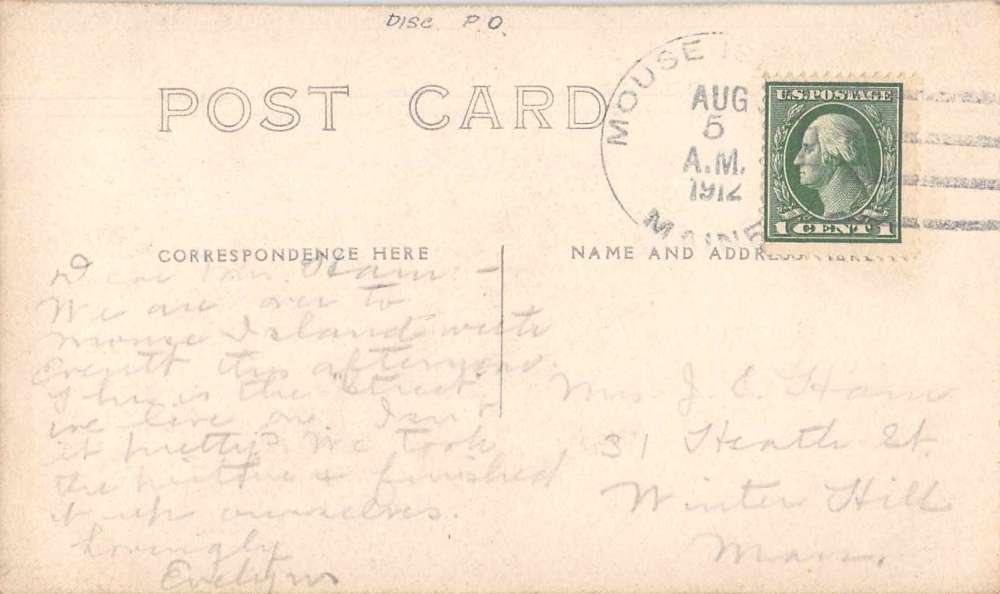 DISC. P.O.
POST CARD
MOUSE IS
AUG
5
A.M.
1912
MAINE
U.S. POSTAGE
1 CENT 1
CORRESPONDENCE HERE
NAME AND ADDRESS HERE
Dear Mrs. Ham:—
We are over to
Mouse Island with
Everett this afternoon.
This is the "Street"
we live on. Isn't
it pretty? We took
the picture & finished
it up ourselves.
Lovingly
Evelyn
Mrs. J. E. Ham
31 Heath St.
Winter Hill
Mass.